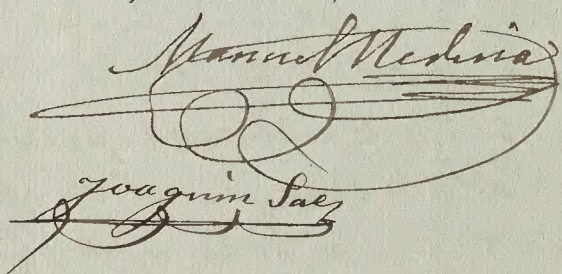 Manuel Medina
Joaquin Saez